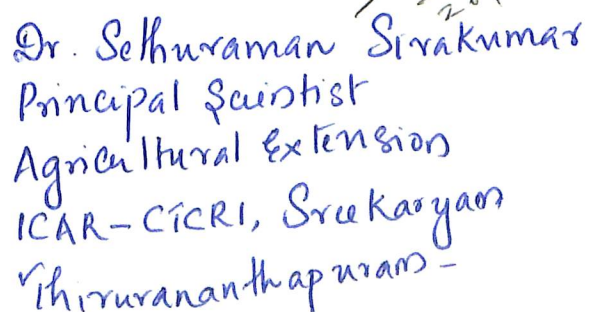 Dr. Sethuraman Sivakumar
Principal Scientist
Agricultural Extension
ICAR-CTCRI, Sreekaryam
Thiruvananthapuram -